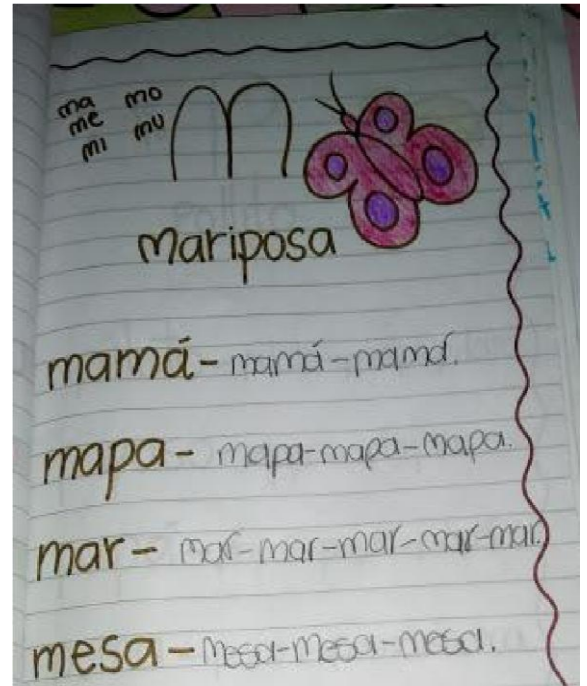 ma mo
me mu
mi
m
mariposa
mamá - mamá - mamá.
mapa - mapa - mapa - mapa.
mar - mar - mar - mar - mar - mar.
mesa - mesa - mesa - mesa.